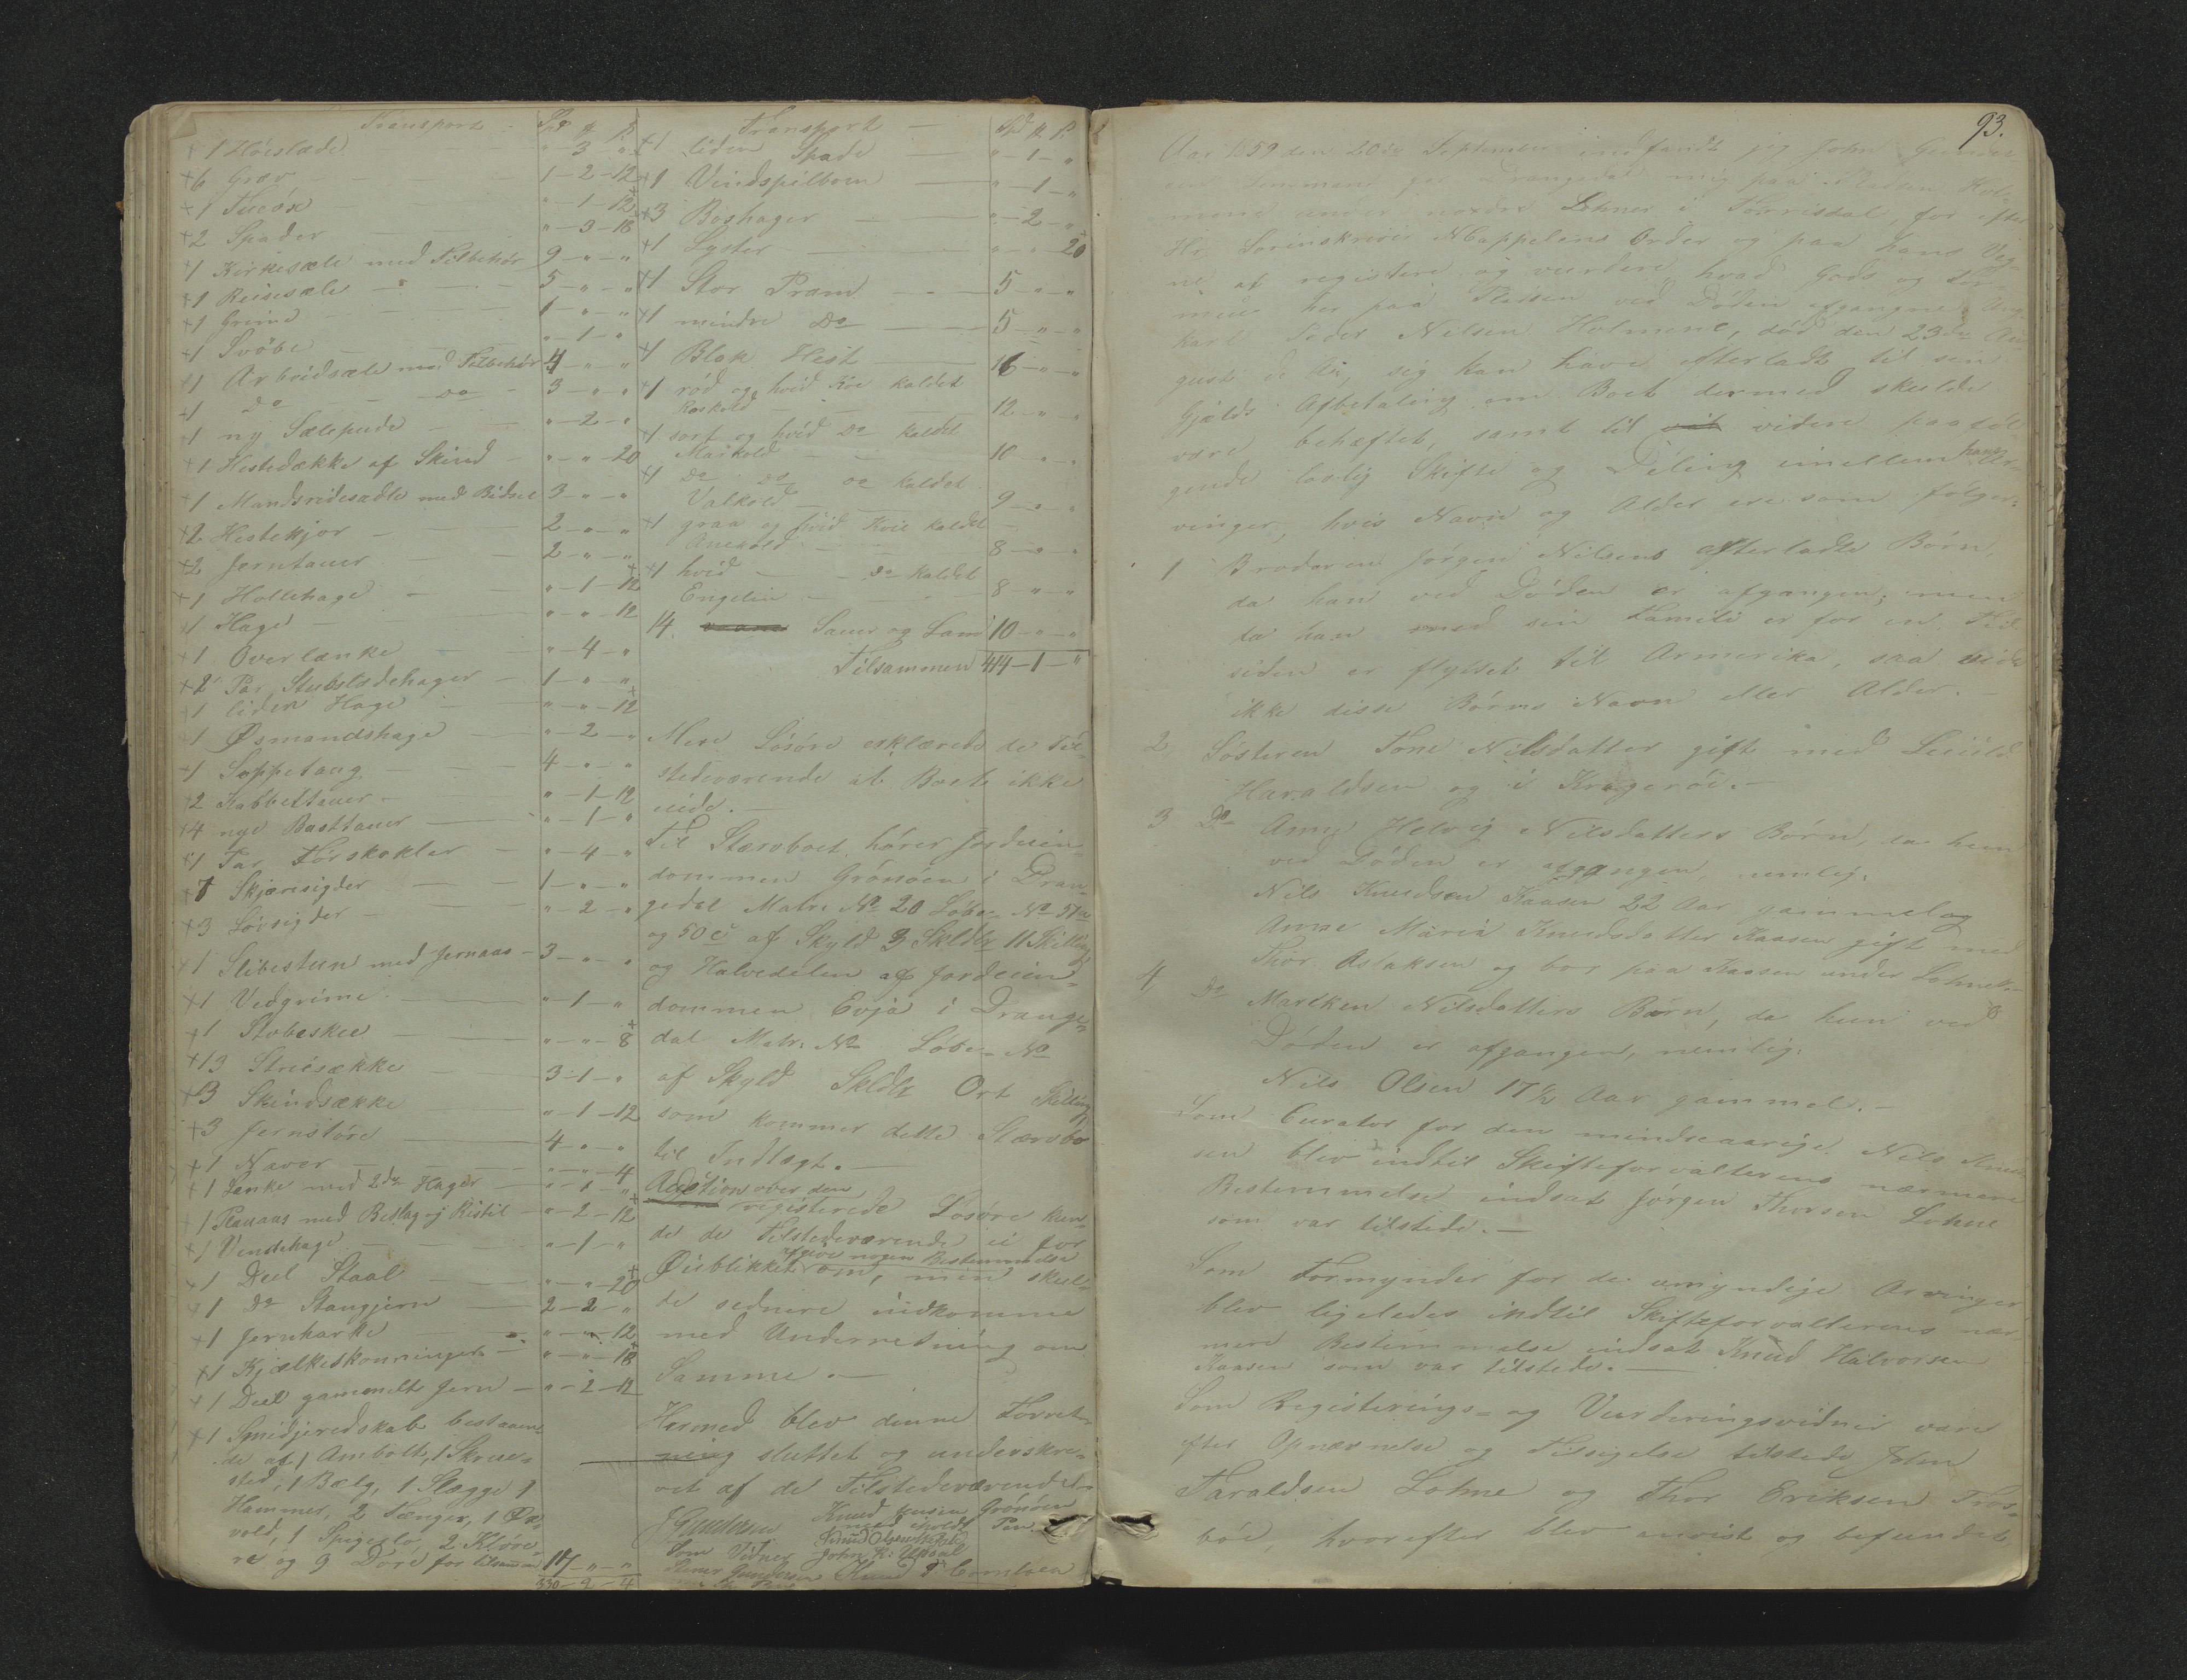 Transport Spd. ₥. ß.
1 Høislæde " 3 "
6 Græv 1-2-12
1 Snøöxe "-1-12
2 Spader "-3-18
1 Kirkesæle med Tilbehör 9-"-"
1 Reisesæle 5-"-"
1 Grime 1-"-"
1 Svöbe "-1-"
1 Arbeidsæle med Tilbehör 4-"-"
1 Do Do 3-"-"
1 ny Sælepude "-2-"
1 Hestedække af Skind "-"-20
1 Mandsridesadle med Bidsel 3-"-"
2 Hestekjør 2-"-"
2 Jerntauer 2-"-"
1 Hollehage "-1-12
1 Hage "-"-12
1 Overlænke "-4-"
2 Par Stubslædehager 1-"-"
1 liden Hage "-"-12
1 Øsmandshage "-2-"
1 Soppetaug 4-"-"
2 Kabbettauer "-1-12
4 nye Basttauer "-1-"
1 Par Forskokler "-4-"
7 Skjæresigder 1-"-"
3 Lövsigder "-2-"
1 Slibesteen med Jernaas 3-"-"
1 Vedgrime "-1-"
1 Stobeskee "-"-8
13 Striesække 3-1-"
3 Skindsække "-1-12
3 Jernstöre 4-"-"
1 Naver "-"-4
1 Lenke med 2de Hager "-1-"
1 Plauaas med Beslag og Ristil "-2-12
1 Vendehage "-1-"
1 Deel Staal "-"-20
1 Do Stangjern 2-2-"
1 Jernharke "-"-12
1 Kjælkeskonninger "-"-18
1 Deel gammelt Jern "-2-12
1 Smidjeredskab bestaaen-
de af 1 Ambolt, 1 Skrue-
sted, 1 Bælg, 1 Slægge 1
Hammer, 2 Tænger, 1
vold, 1 Spigerlo, 2 Klöve-
re og 9 Dore for tilsammen 17-"-"
330-2-4
Transport Spd. ₥. ß.
1 liden Spade "-1-"
1 Vindspilboen "-1-"
3 Boshager "-2-"
1 Lyster "-"-20
1 Stor Pram 5-"-"
1 mindre Do 5-"-"
1 Blak Hest 16-"-"
1 röd og hvid Koe kaldet
Roskold 12-"-"
1 sort og hvid Do kaldet
Maikold 10-"-"
1 Do Do Do kaldet
Valkold 9-"-"
1 graa og hvid Kvie kaldet
Anekold 8-"-"
1 hvid Do kaldet
Engelin 8-"-"
14 Sauer og Lam 10-"-"
Tilsammen 414-1-"
Mere Lösöre erklærede de Til-
stedeværende at Boet ikke
eiede.
Til Stærvboet hörer Jordeien-
dommen Grönöen i Dran-
gedal Matr. No 20 Löbe No 51a
og 50c af Skyld 3 Skldlr 11 Skilling
og Halvedelen af Jordeien-
dommen Evja i Drange-
dal Matr. No Löbe No
af Skyld Skldlr Ort Skilling,
som kommer dette Stærvbo
til Indtægt.
Auction over den
registerede Lösöre kun-
de de Tilstedeværende ei for
afgive nogen Bestemmelse
Öieblikket om, men skul-
de sednere indkomme
med Underretning om
Samme.
Hermed blev denne Forret-
ning sluttet og underskre-
vet af de Tilstedeværende.
J Gundersen Knud Jensen Grönöen
med iholdt Pen
Som Vidner John K: Updaal
93.
Aar 1859 den 20de September indfandt jeg John Gunder
sen Lensmand for Drangedal mig paa Pladsen Hol-
mene under nordre Lohne i Torrisdal, for efter
Hr. Sorenskriver NCappelens Order og paa hans Veg-
ne at registere og vurdere hvad Gods og For-
mue her paa Pladsen ved Döden afgangne Ung-
karl Peder Nilsen Holmene, död den 23de Au
gust d. A., seg kan have efterladt til sin
Gjælds Afbetaling om Boet dermed skulde
være behæftet, samt til videre paaföl
gende lovlig Skifte og Deling imellem hans Ar-
vinger, hvis Navn og Alder ere som fölger:
1 Broderen Jörgen Nilsens efterladte Börn,
da han ved Döden er afgangen; men
da han med sin Familie er for en Tid
siden er flyttet til Armerika, saa vides
ikke disse Börns Navn eller Alder.
2 Sösteren Tone Nilsdatter gift med Leiuld
Haraldsen og i Kragerøe.
3 Do Anne Helvig Nilsdatters Börn, da hun
ved Döden er afgangen, nemlig.
Nils Knudsen Kaasen 22 Aar gammel og
Anne Maria Knudsdatter Kaasen gift med
Thor Aslaksen og bor paa Kaasen under Lohne.
4 Do Marthen Nilsdatters Börn, da hun ved
Döden er afgangen, nemlig:
Nils Olsen 17½ Aar gammel.
Som Curator for den mindreaarige Nils Knud
sen blev indtil Skifteforvalterens nærmere
Bestemmelse indsat Jörgen Thorsen Lohne
som var tilstede.
Som Formynder for de umyndige Arvinger
blev ligeledes indtil Skifteforvalterens nær
mere Bestemmelse indsat Knud Halvorsen
Kaasen som var tilstede.
Som Registerings- og Vurderingsvidner vare
efter Opnævnelse og Tilsigelse tilstede John
Taraldsen Lohne og Thor Eriksen Tros-
böe, hvorefter blev anvist og befundet,